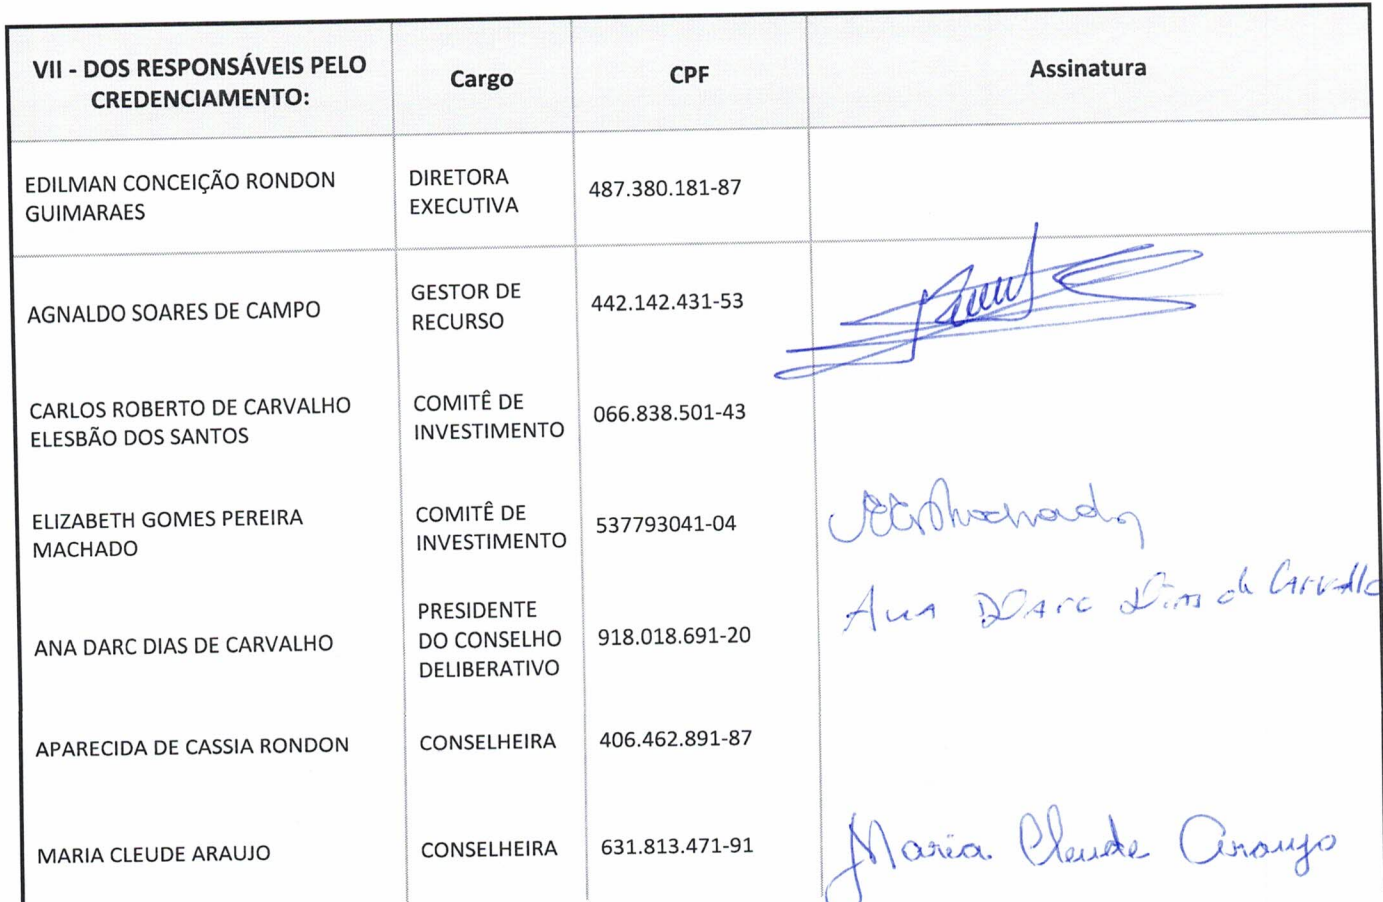 VII - DOS RESPONSÁVEIS PELO
CREDENCIAMENTO:
Cargo
CPF
Assinatura
EDILMAN CONCEIÇÃO RONDON
GUIMARAES
DIRETORA
EXECUTIVA
487.380.181-87
AGNALDO SOARES DE CAMPO
GESTOR DE
RECURSO
442.142.431-53
CARLOS ROBERTO DE CARVALHO
ELESBÃO DOS SANTOS
COMITÊ DE
INVESTIMENTO
066.838.501-43
ELIZABETH GOMES PEREIRA
MACHADO
COMITÊ DE
INVESTIMENTO
537793041-04
Machado
ANA DARC DIAS DE CARVALHO
PRESIDENTE
DO CONSELHO
DELIBERATIVO
918.018.691-20
Ana Darc Dias de Carvalho
APARECIDA DE CASSIA RONDON
CONSELHEIRA
406.462.891-87
MARIA CLEUDE ARAUJO
CONSELHEIRA
631.813.471-91
Maria Cleude Araujo